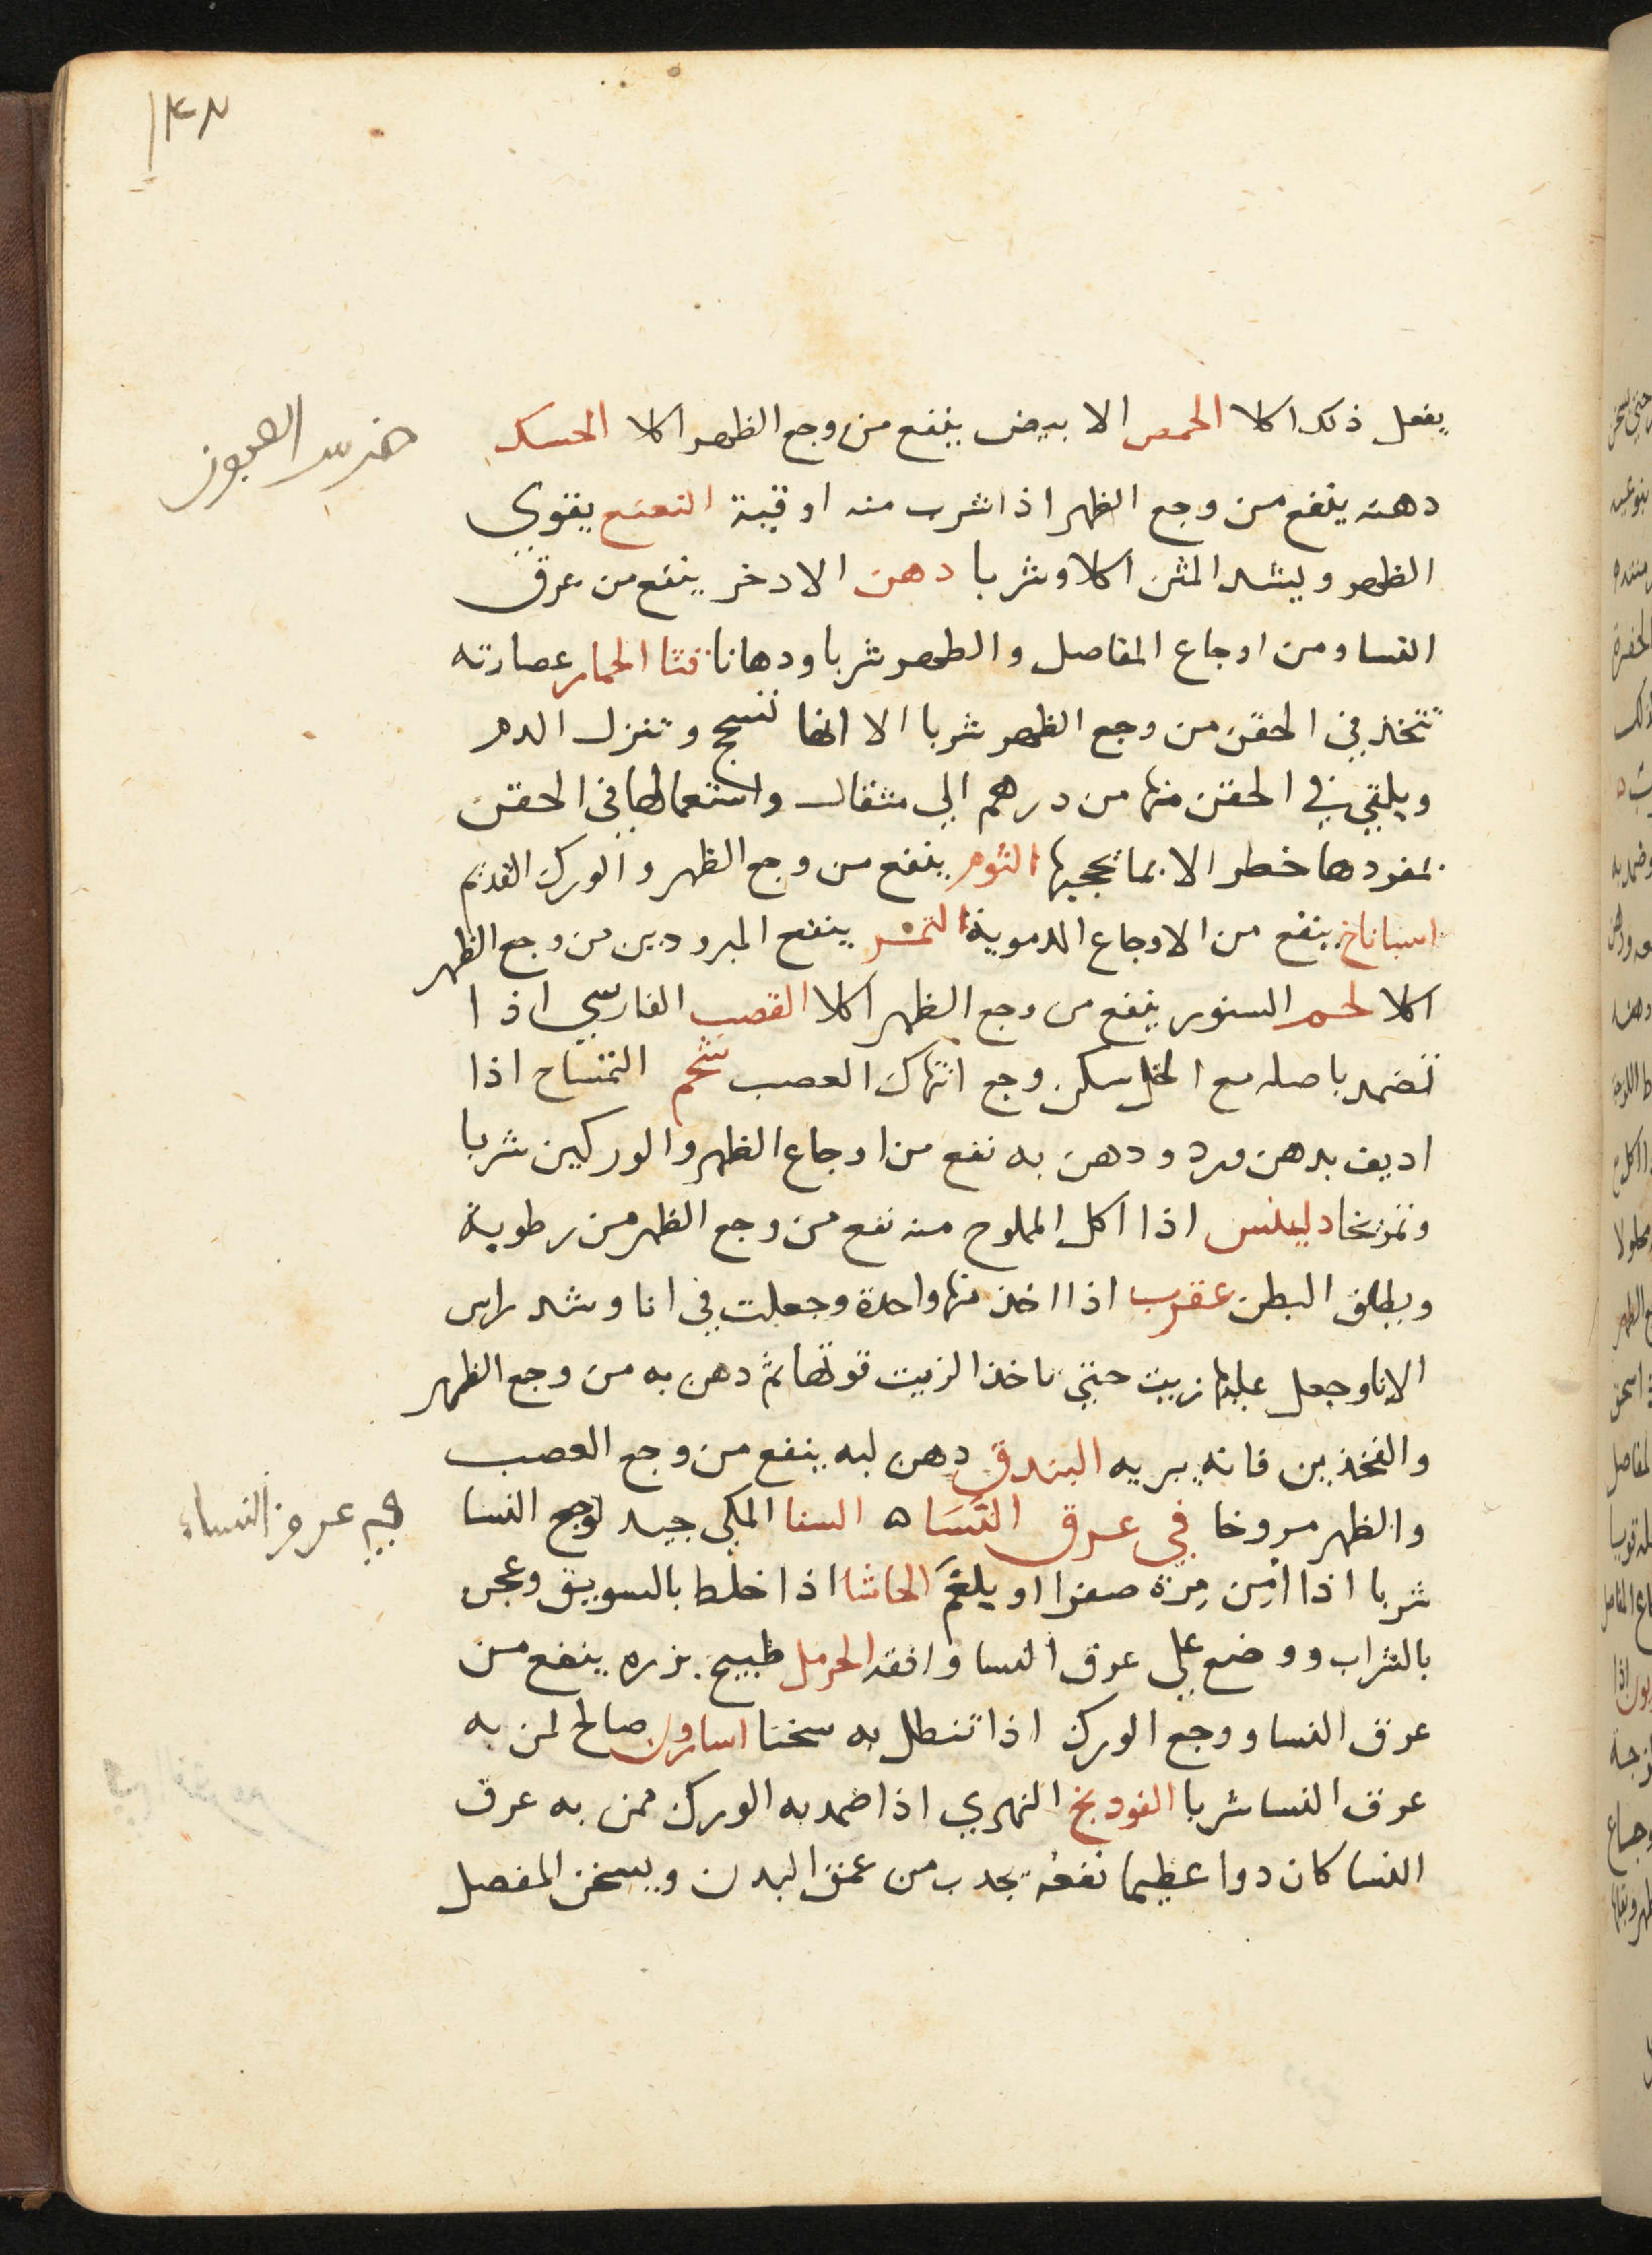 ١٤٢
يفعل ذلك اكلا الحمص الابيض ينفع من وجع الظهر اكلا الحسك
ضرس العجوز
دهنه ينفع من وجع الظهر اذا شرب منه اوقية النعنع يقوي
الظهر ويشد المثن اكلا وشربا دهن الادخر ينفع من عرق
النسا ومن اوجاع المفاصل والظهر شربا ودهانا قثا الحمار عصارته
تتخذ في الحقن من وجع الظهر شربا الا انها تسحج وتنزل الدم
ويلقي في الحقن منها من درهم الي مثقال واستعمالها في الحقن
بمفردها خطر الا بما يحجبها الثوم ينفع من وجع الظهر والورك القديم
اسباناخ ينفع من الاوجاع الدموية التمر ينفع المبرودين من وجع الظهر
اكلا لحم السنور ينفع من وجع الظهر اكلا القصب الفارسي اذا
تضمد باصله مع الخل سكن وجع انتهاك العصب شحم التمساح اذا
اديف بدهن ورد ودهن به نفع من اوجاع الظهر والوركين شربا
وتمريخا دلينس اذا اكل المملوح منه نفع من وجع الظهر من رطوبة
ويطلق البطن عقرب اذا اخذ منها واحدة وجعلت في انا وشد راس
الانا وجعل عليها زيت حتي ياخذ الزيت قوتها ثم دهن به من وجع الظهر
والفخذين فانه يبريه البندق دهن لبه ينفع من وجع العصب
والظهر مروخا في عرق النسا ه السنا المكي جيد لوجع النسا
في عرق النساء
شربا اذا امن مرة صفرا او بلغم الحاشا اذا خلط بالسويق وعجن
بالشراب ووضع علي عرق النسا وافقه الحرمل طبيخ بزره ينفع من
عرق النسا ووجع الورك اذا تنطل به سخنا اسارون صالح لمن به
عرق النسا شربا الفودنج النهري اذا ضمد به الورك ممن به عرق
النسا كان دوا عظيما نفعه يجدب من عمق البدن ويسخن المفصل